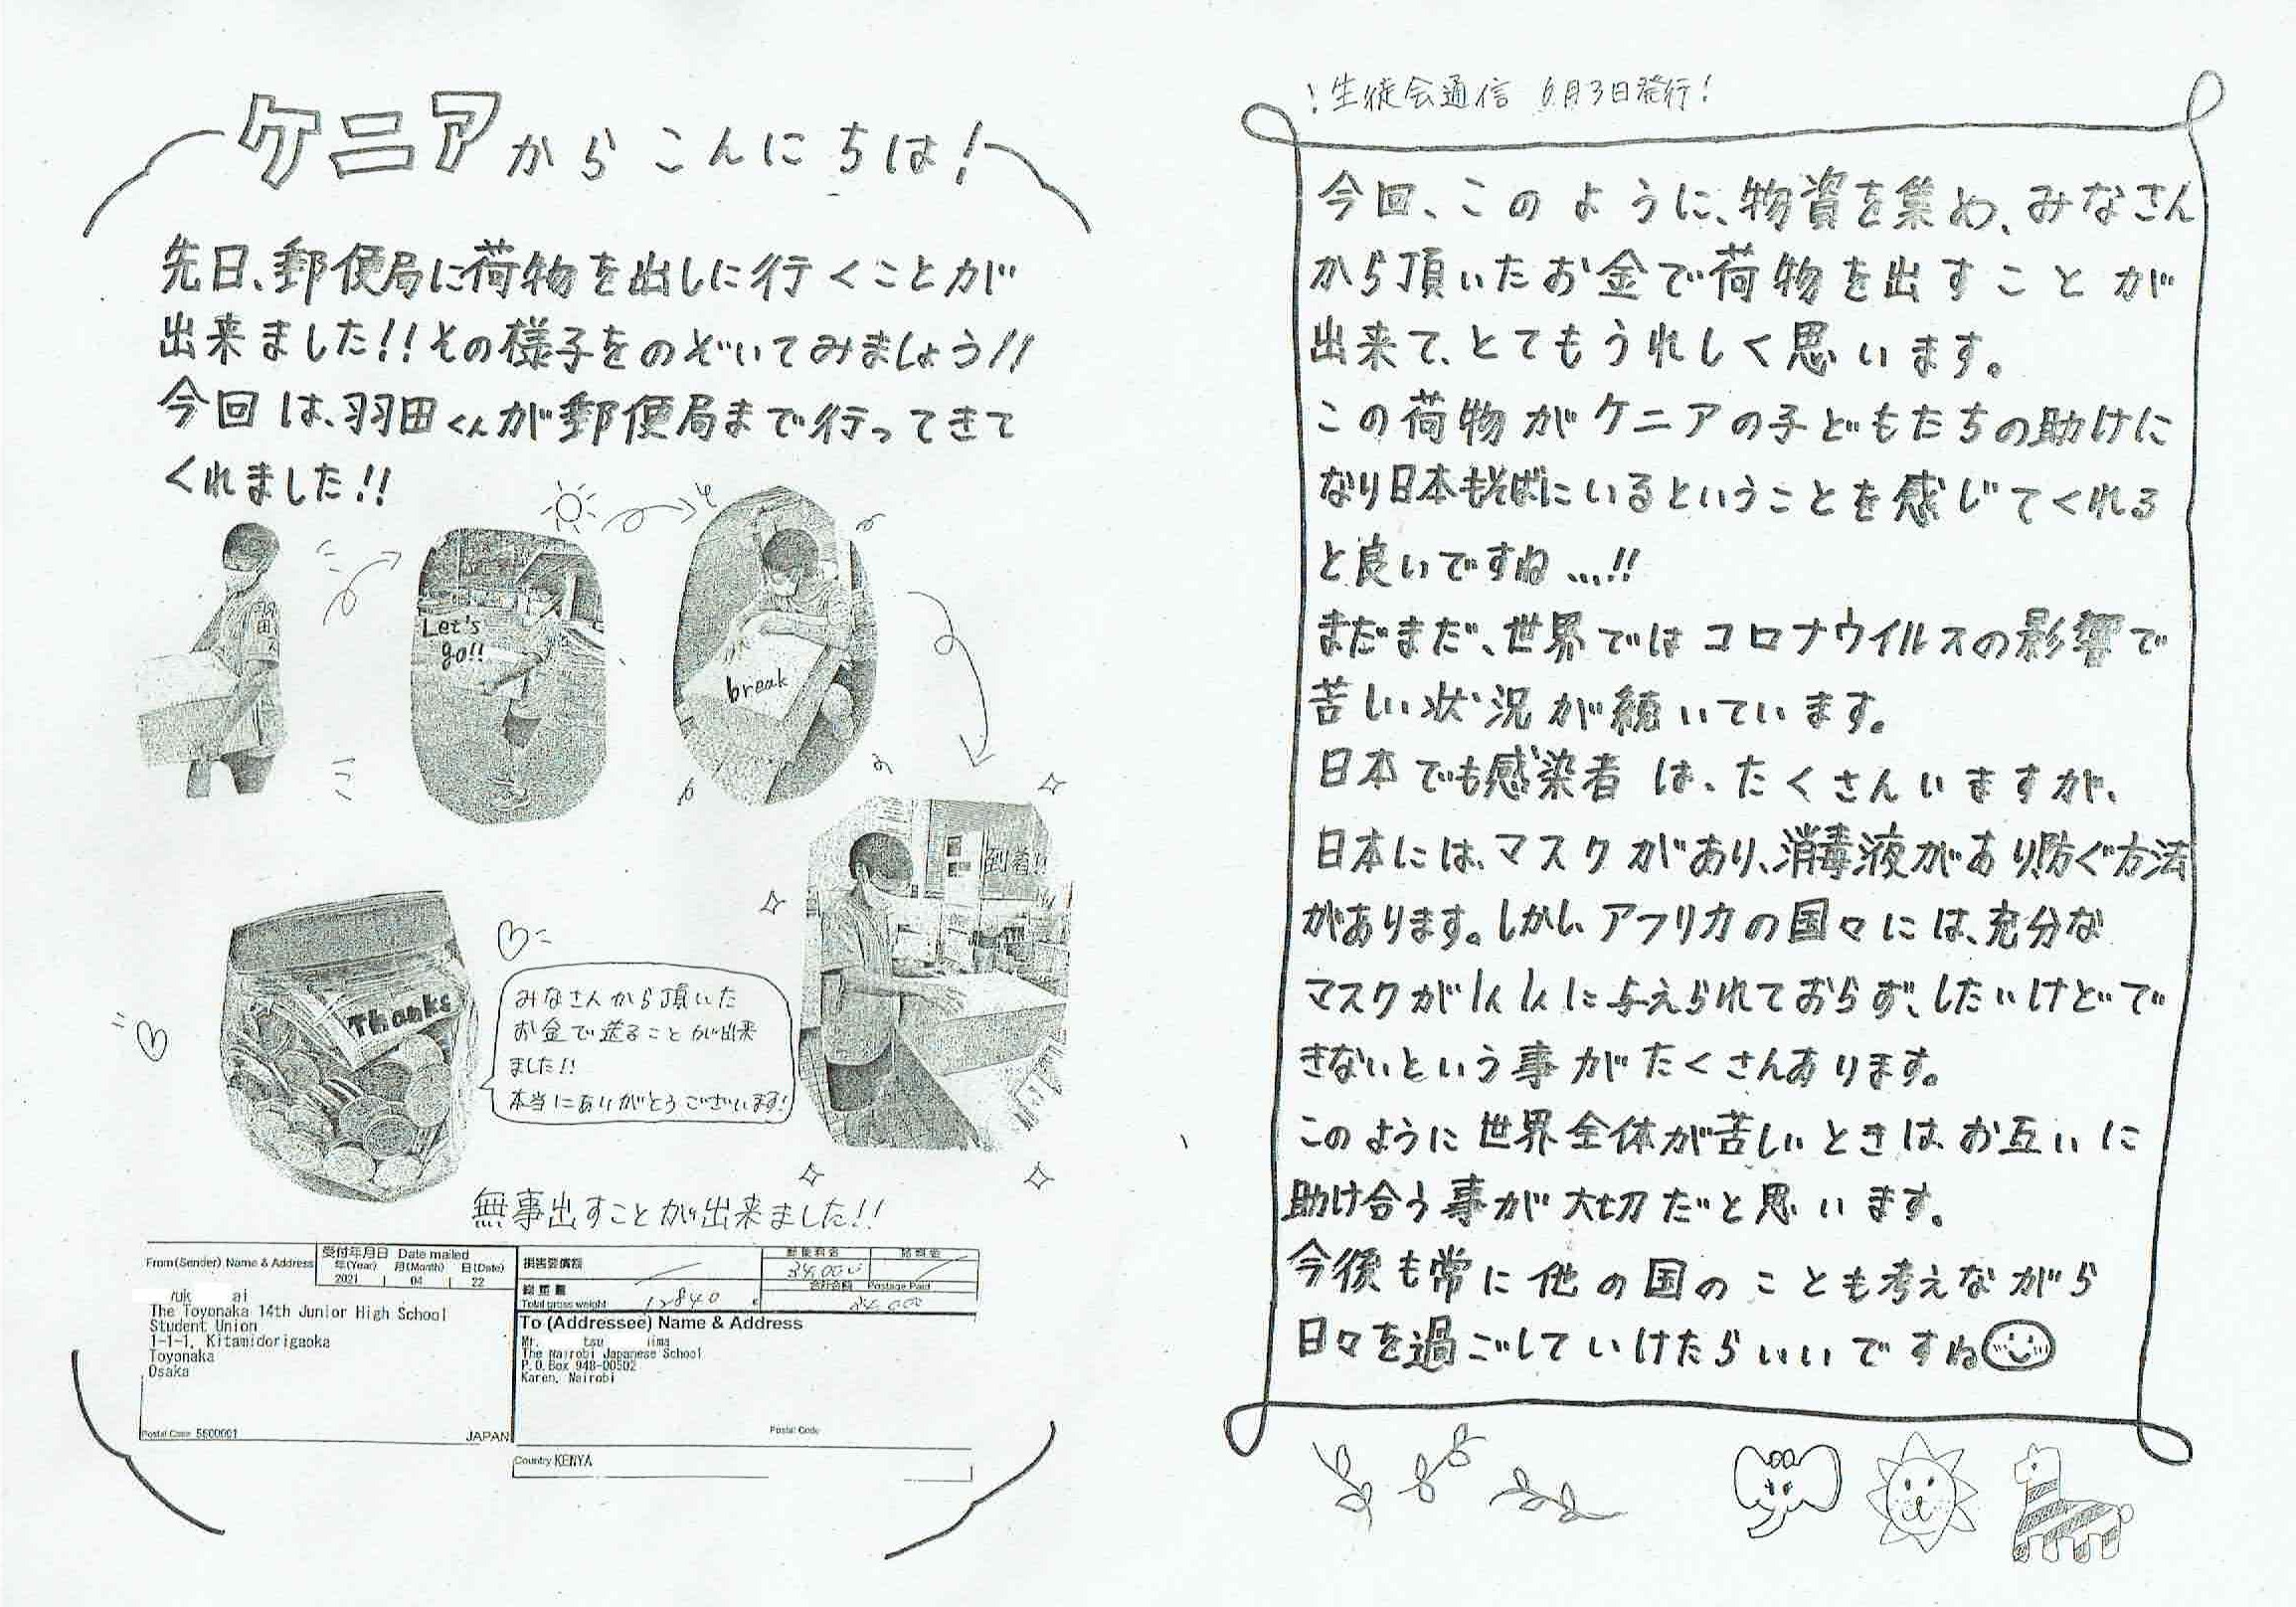 ケニアからこんにちは!
先日、郵便局に荷物を出しに行くことが
出来ました!!その様子をのぞいてみましょう!!
今回は、羽田くんが郵便局まで行ってきて
くれました!!
Let's
go!!
break
到着!!
Thanks
みなさんから頂いた
お金で送ることが出来
ました!!
本当にありがとうございます!
無事出すことが出来ました!!
From(Sender) Name & Address
受付年月日 Date mailed
年(Year) 月(Month) 日(Date)
2021 04 22
損害要償額
郵便料金
34,000
総重量
Total gross weight 12840
合計金額 Postage Paid
The Toyonaka 14th Junior High School
Student Union
1-1-1, Kitamidorigaoka
Toyonaka
Osaka
Postal Code 5600001
JAPAN
To (Addressee) Name & Address
Mr.
The Nairobi Japanese School
P.O.Box 948-00502
Karen, Nairobi
Postal Code
Country KENYA
!生徒会通信 6月3日発行!
今回、このように、物資を集め、みなさん
から頂いたお金で荷物を出すことが
出来て、とてもうれしく思います。
この荷物がケニアの子どもたちの助けに
なり日本もそばにいるということを感じてくれる
と良いですね...!!
まだまだ、世界ではコロナウイルスの影響で
苦しい状況が続いています。
日本でも感染者は、たくさんいますが、
日本には、マスクがあり、消毒液があり防ぐ方法
があります。しかし、アフリカの国々には、充分な
マスクが人々に与えられておらず、したいけどで
きないという事がたくさんあります。
このように世界全体が苦しいときは、お互いに
助け合う事が大切だと思います。
今後も常に他の国のことも考えながら
日々を過ごしていけたらいいですね